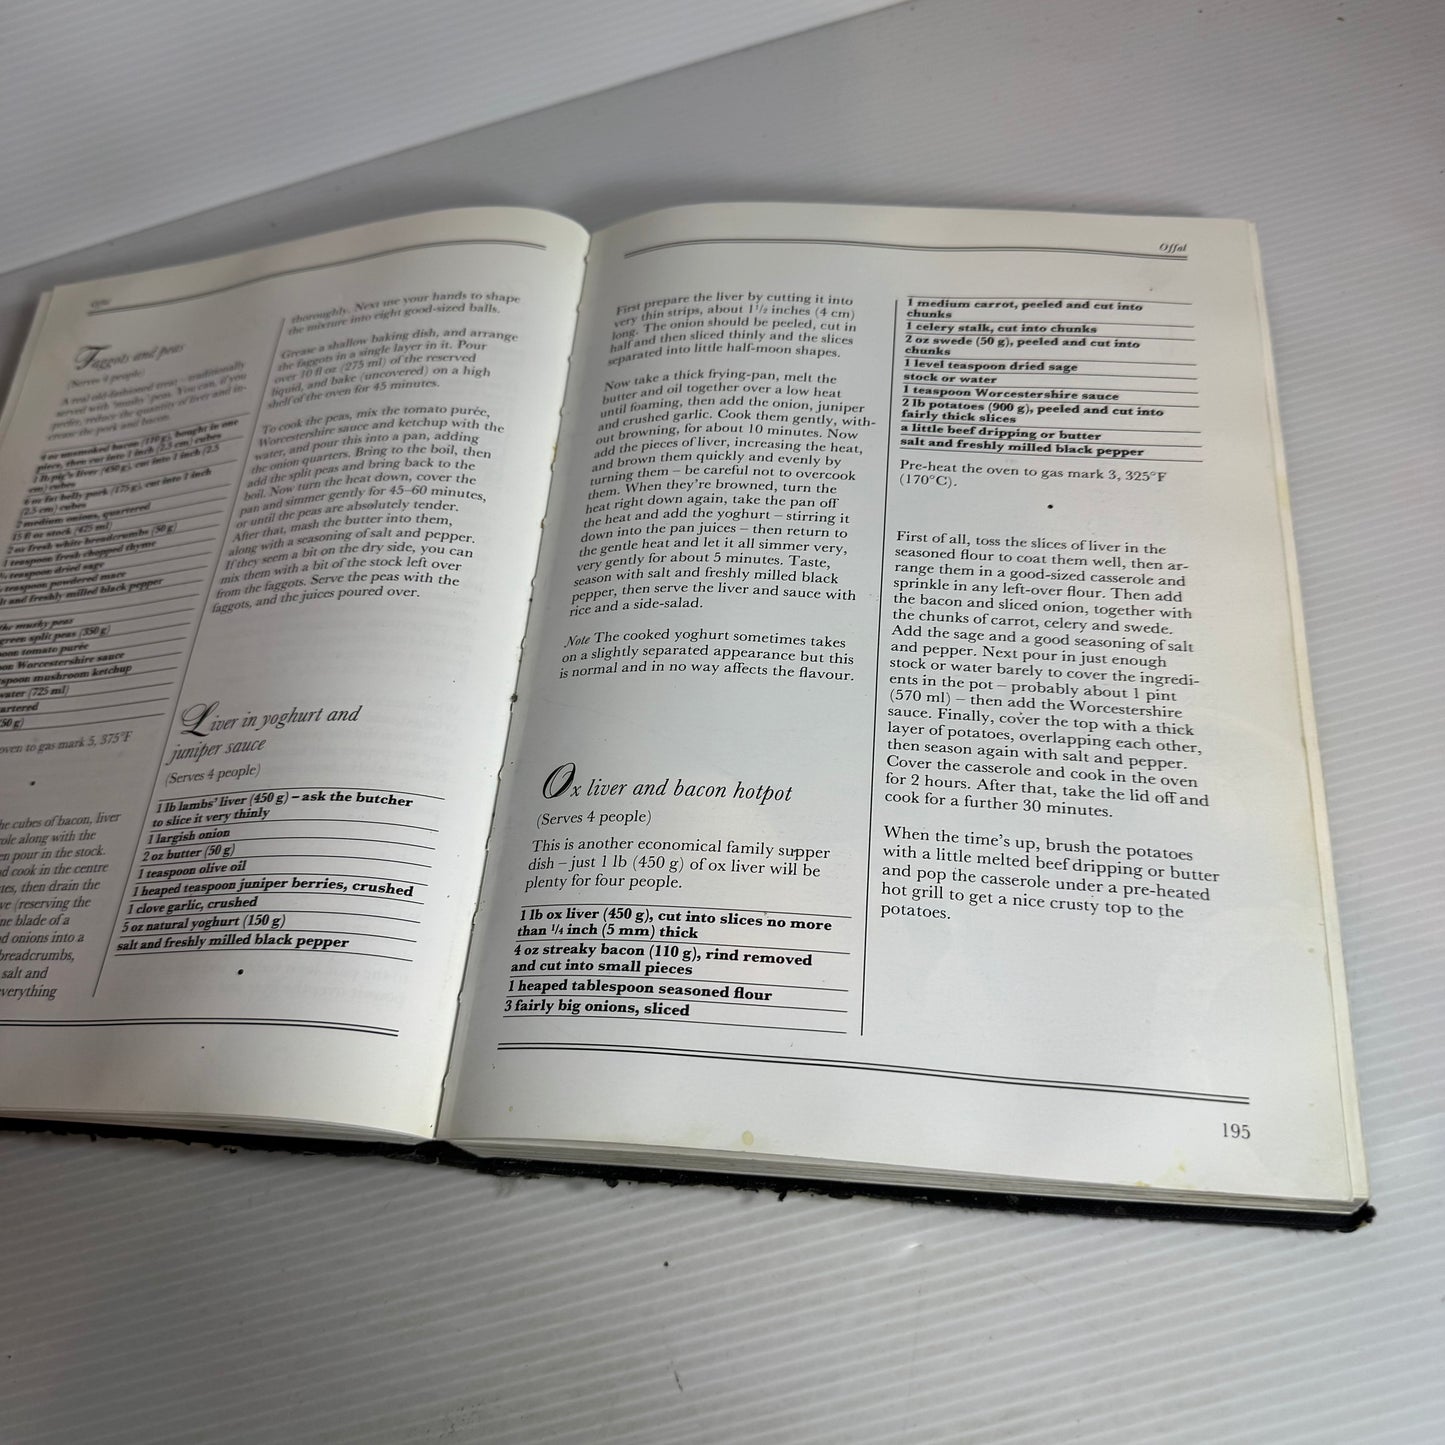 Offal
Faggots and peas
(Serves 4 people)
A real old-fashioned treat – traditionally
served with 'mushy' peas. You can, if you
prefer, reduce the quantity of liver and in-
crease the pork and bacon.
4 oz unsmoked bacon (110 g), bought in one
piece, then cut into 1 inch (2.5 cm) cubes
1 lb pig's liver (450 g), cut into 1 inch (2.5
cm) cubes
6 oz fat belly pork (175 g), cut into 1 inch
(2.5 cm) cubes
2 medium onions, quartered
15 fl oz stock (425 ml)
2 oz fresh white breadcrumbs (50 g)
1 teaspoon fresh chopped thyme
teaspoon dried sage
teaspoon powdered mace
salt and freshly milled black pepper
the mushy peas
green split peas (350 g)
tomato purée
Worcestershire sauce
mushroom ketchup
water (725 ml)
(50 g)
oven to gas mark 5, 375°F
the cubes of bacon, liver
along with the
pour in the stock.
cook in the centre
then drain the
(reserving the
blade of a
onions into a
breadcrumbs,
salt and
everything
thoroughly. Next use your hands to shape
the mixture into eight good-sized balls.
Grease a shallow baking dish, and arrange
the faggots in a single layer in it. Pour
over 10 fl oz (275 ml) of the reserved
liquid, and bake (uncovered) on a high
shelf of the oven for 45 minutes.
To cook the peas, mix the tomato purée,
Worcestershire sauce and ketchup with the
water, and pour this into a pan, adding
the onion quarters. Bring to the boil, then
add the split peas and bring back to the
boil. Now turn the heat down, cover the
pan and simmer gently for 45–60 minutes,
or until the peas are absolutely tender.
After that, mash the butter into them,
along with a seasoning of salt and pepper.
If they seem a bit on the dry side, you can
mix them with a bit of the stock left over
from the faggots. Serve the peas with the
faggots, and the juices poured over.
Liver in yoghurt and
juniper sauce
(Serves 4 people)
1 lb lambs' liver (450 g) – ask the butcher
to slice it very thinly
1 largish onion
2 oz butter (50 g)
1 teaspoon olive oil
1 heaped teaspoon juniper berries, crushed
1 clove garlic, crushed
5 oz natural yoghurt (150 g)
salt and freshly milled black pepper
Offal
First prepare the liver by cutting it into
very thin strips, about 1½ inches (4 cm)
long. The onion should be peeled, cut in
half and then sliced thinly and the slices
separated into little half-moon shapes.
Now take a thick frying-pan, melt the
butter and oil together over a low heat
until foaming, then add the onion, juniper
and crushed garlic. Cook them gently, with-
out browning, for about 10 minutes. Now
add the pieces of liver, increasing the heat,
and brown them quickly and evenly by
turning them – be careful not to overcook
them. When they're browned, turn the
heat right down again, take the pan off
the heat and add the yoghurt – stirring it
down into the pan juices – then return to
the gentle heat and let it all simmer very,
very gently for about 5 minutes. Taste,
season with salt and freshly milled black
pepper, then serve the liver and sauce with
rice and a side-salad.
Note The cooked yoghurt sometimes takes
on a slightly separated appearance but this
is normal and in no way affects the flavour.
Ox liver and bacon hotpot
(Serves 4 people)
This is another economical family supper
dish – just 1 lb (450 g) of ox liver will be
plenty for four people.
1 lb ox liver (450 g), cut into slices no more
than ¼ inch (5 mm) thick
4 oz streaky bacon (110 g), rind removed
and cut into small pieces
1 heaped tablespoon seasoned flour
3 fairly big onions, sliced
1 medium carrot, peeled and cut into
chunks
1 celery stalk, cut into chunks
2 oz swede (50 g), peeled and cut into
chunks
1 level teaspoon dried sage
stock or water
1 teaspoon Worcestershire sauce
2 lb potatoes (900 g), peeled and cut into
fairly thick slices
a little beef dripping or butter
salt and freshly milled black pepper
Pre-heat the oven to gas mark 3, 325°F
(170°C).
First of all, toss the slices of liver in the
seasoned flour to coat them well, then ar-
range them in a good-sized casserole and
sprinkle in any left-over flour. Then add
the bacon and sliced onion, together with
the chunks of carrot, celery and swede.
Add the sage and a good seasoning of salt
and pepper. Next pour in just enough
stock or water barely to cover the ingredi-
ents in the pot – probably about 1 pint
(570 ml) – then add the Worcestershire
sauce. Finally, cover the top with a thick
layer of potatoes, overlapping each other,
then season again with salt and pepper.
Cover the casserole and cook in the oven
for 2 hours. After that, take the lid off and
cook for a further 30 minutes.
When the time's up, brush the potatoes
with a little melted beef dripping or butter
and pop the casserole under a pre-heated
hot grill to get a nice crusty top to the
potatoes.
195